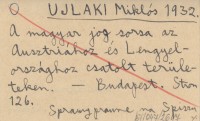 UJLAKI Miklós 1932.
A magyar jog sorsa az
Ausztriához és Lengyel-
országhoz csatolt terüle-
teken. — Budapest. Stron
126.
Sprawy prawne na Spiszu